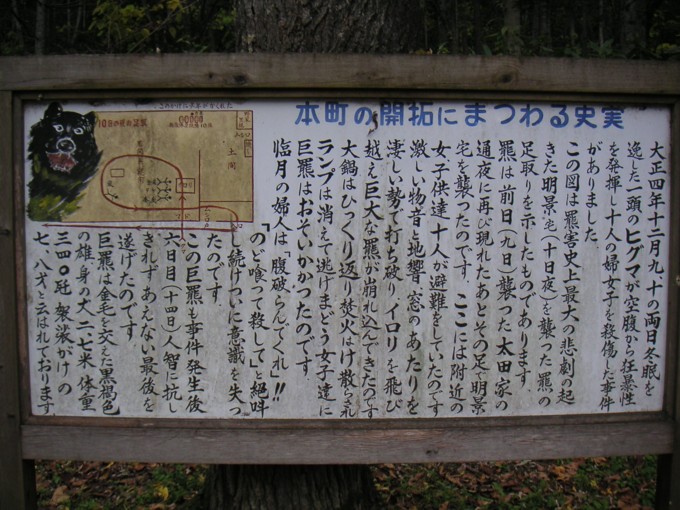 本町の開拓にまつわる史実
大正四年十二月九、十の両日冬眠を
逸した一頭のヒグマが空腹から狂暴性
を発揮し十人の婦女子を殺傷した事件
がありました
この図は羆害史上最大の悲劇の起
きた明景宅(十日夜)を襲った羆の
足取りを示したものであります
羆は前日(九日)襲った太田家の
通夜に再び現れたあとその足で明景
宅を襲ったのです.ここには附近の
女子供達十人が避難をしていたのです
激しい物音と地響、窓のあたりを
凄しい勢で打ち破りイロリを飛び
越え巨大な羆が崩れ込んできたのです
大鍋はひっくり返り焚火はけ散らされ
ランプは消えて逃げまどう女子達に
巨羆はおそいかかったのです
臨月の婦人は「腹破らんでくれ!!
「のど喰って殺して」と絶叫
し続けついに意識を失っ
たのです
この巨羆も事件発生後
六日目(十四日)人智に抗し
きれずあえない最後を
遂げたのです
巨羆は金毛を交えた黒褐色
の雄、身の大二・七米、体重
三四〇瓩、袈裟がけの
七、八才と云はれております
土間